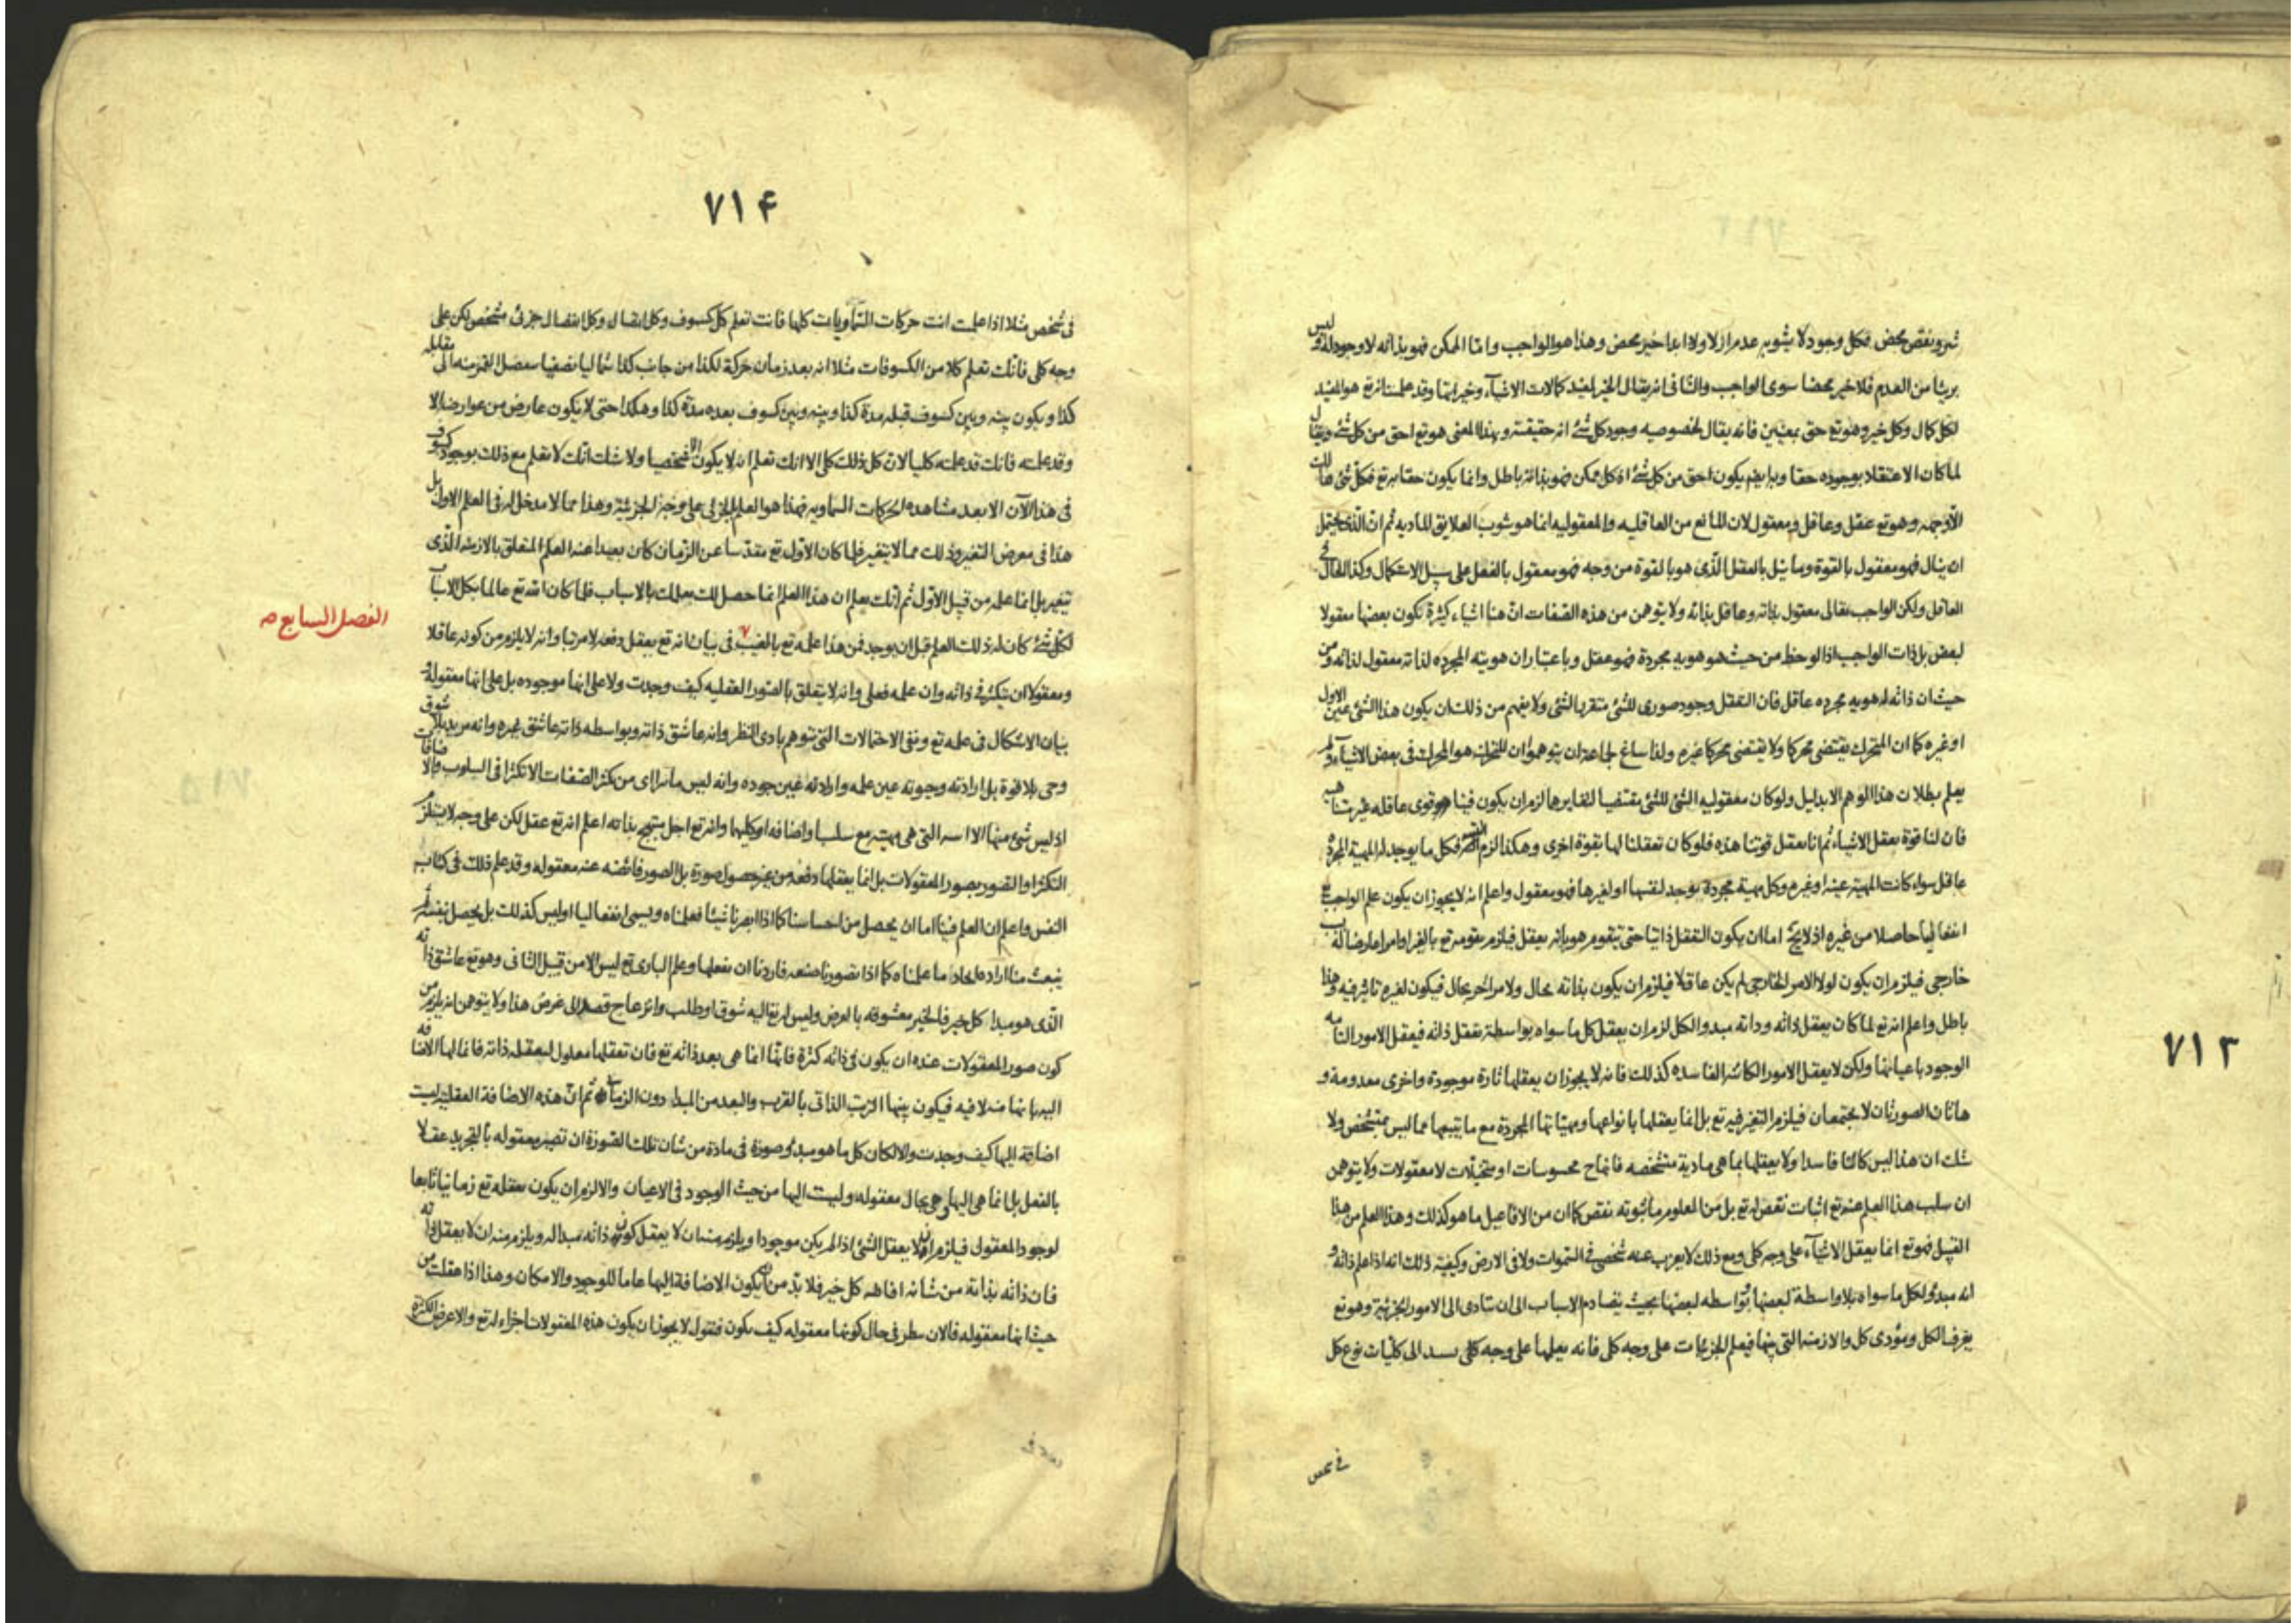 شر ونقص محض فكل وجود لا يشوبه عدم ازلا ولا ابدا خير محض وهذا هو الواجب واما الممكن فهو بذاته لا وجود له فليس
بريئا من العدم فلا خير محضا سوى الواجب والثانى انه يقال الخير لمفيد كمالات الاشياء وخيراتها وقد علمت انه تع هو المفيد
لكل كمال وكل خير وهو تع حق بمعنيين فانه يقال لخصوصيه وجود كل شئ انه حقيقته وبهذا المعنى هو تع احق من كل شئ ويقال
لما كان الاعتقاد بوجوده حقا وبه ايضا يكون احق من كل شئ اذ كل ممكن فهو بذاته باطل وانما يكون حقا به تع فكل شئ هالك
الا وجهه وهو تع عقل وعاقل ومعقول لان المانع من العاقليه والمعقوليه انما هو شوب العلايق الماديه ثم ان الذى يحتمل
ان ينال فهو معقول بالقوة وما ينل بالعقل الذى هو بالقوة من وجه فهو معقول بالفعل على سبيل الاستكمال وكذا الحال فى
العاقل ولكن الواجب تعالى معقول بذاته وعاقل بذاته ولا يتوهمن من هذه الصفات ان هنا اشياء كثيرة تكون بعضها معقولا
لبعض بل ذات الواجب اذا لوحظ من حيث هو هويه مجردة فهو عقل وباعتبار ان هويته المجرده لذاته معقول لذاته ومن
حيث ان ذاته له هويه مجرده عاقل فان التعقل وجود صورى للشئ متقررا لشئ ولا يفهم من ذلك ان يكون هذا الشئ عين الاول
او غيره كما ان المتحرك يقتضى محركا ولا يقتضى محركا غيره ولذا ساغ لجماعة ان يتوهموا ان المتحرك هو المحرك فى بعض الاشياء ولم
يعلم بطلان هذا الوهم الا بدليل ولو كان معقوليه الشئ للشئ مقتضيا لتغايرها لزم ان يكون فينا قوى عاقله غير متناهيه
فان لنا قوة بعقل الاشياء ثم انا نعقل قوتنا هذه فلو كان تعقلنا لها بقوة اخرى وهكذا لزم التس فكل ما يوجد له المهية المجردة
عاقل سواء كانت المهية عينه او غيره وكل مهية مجردة يوجد لنفسها او لغيرها فهو معقول واعلم انه لا يجوز ان يكون علم الواجب تع
انفعاليا حاصلا من غيره اذ لا يخ اما ان يكون التعقل ذاتيا حتى يتقوم هو بانه يعقل فيلزم تقومه تع بالغير او امرا عارضا له بسبب
خارجى فيلزم ان يكون لولا الامر الخارجى لم يكن عاقلا فيلزم ان يكون بذاته بحال ولامر اخر بحال فيكون لغيره تاثير فيه وهذا
باطل واعلم انه تع لما كان يعقل ذاته وذاته مبدء الكل لزم ان يعقل كل ما سواه بواسطة تعقل ذاته فيعقل الامور التامه
الوجود باعيانها ولكن لا يعقل الامور الكائنه الفاسده كذلك فانه لا يجوز ان يعقلها تارة موجودة واخرى معدومة و
هاتان الصورتان لا يجتمعان فيلزم التغير فيه تع بل انما يعقلها بانواعها ومهياتها المجردة مع ما يتبعها مما ليس بمتشخص ولا
شك ان هذا ليس كائنا فاسدا ولا يعقلها بما هى مادية متشخصه فانها ح محسوسات او متخيلات لا معقولات ولا يتوهمن
ان سلب هذا العلم عنه تع اثبات نقص له تع بل من المعلوم ما ثبوته نقص كما ان من الافاعيل ما هو كذلك وهذا العلم من هذا
القبيل فهو تع انما يعقل الاشياء على وجه كلى ومع ذلك لا يعزب عنه شخصى فى السموات ولا فى الارض وكيفية ذلك انه اذا علم ذاته و
انه مبدء لكل ما سواه بلا واسطة لبعضها وبواسطه لبعضها بحيث يتصادم الاسباب الى ان تتادى الى الامور الجزئية وهو تع
يعرف الكل ومؤدى كل والازمنه التى بينها فيعلم الجزئيات على وجه كلى فانه يعلمها على وجه كلى الى كليات نوع كل
فى شخص
٧١٣
٧١۴
فى شخص مثلا اذا علمت انت حركات السماويات كلها فانت تعلم كل كسوف وكل اتصال وكل انفصال جزئى متشخص لكن على
وجه كلى فانك تعلم كلا من الكسوفات مثلا انه بعد زمان حركة لكذا من جانب كذا شماليا نصفيا القمر منه الى مقابله
كذا ويكون بينه وبين كسوف قبله مدة كذا وبينه وبين كسوف بعده مدة كذا وهكذا حتى لا يكون عارض من عوارضه الا
وقد علمته فانت قد علمته كليا لان كل ذلك كلى الا انك تعلم انه لا يكون الا شخصيا ولا شك انك لا تعلم مع ذلك بوجود كسوف
فى هذا الآن الا بعد مشاهده الحركات السماويه فهذا هو العلم الجزئى على وجه الجزئية وهذا مما لا مدخل له فى العلم الاول بل
هذا فى معرض التغير وذلك مما لا يتغير فلما كان الاول تع مقدسا عن الزمان كان بعيدا عنه العلم المتعلق بالازمنه الذى
يتغير بل انما علمه من قبيل الاول ثم انك تعلم ان هذا العلم انما حصل لك بعلمك بالاسباب فلما كان الله تع عالما بكل الاسباب
لكل شئ كان له ذلك العلم قبل ان يوجد فمن هذا علمه تع بالغيب ٧ فى بيان انه تع يعقل دفعه لا مرتبا وانه لا يلزم من كونه عاقلا
الفصل السابع
ومعقولا ان يتكثر فى ذاته وان علمه فعلى وانه لا يتعلق بالصور العقليه كيف وجدت ولا على انها موجوده بل على انها معقوله و
بيان الاشكال فى علمه تع ونفى الاحتمالات التى تتوهم بادى النظر وانه عاشق ذاته وبواسطه ذاته عاشق غيره وانه مريد بلا شوق
وحى بلا قوة بل ارادته وحيوته عين علمه وارادته عين جوده وانه ليس ما يتراءى من تكثر الصفات الا تكثرا فى السلوب والاضافات
اذ ليس شئ منها الا التى هى مهيته مع سلب او اضافه او كليهما وانه تع اجل مبتهج بذاته اعلم انه تع عقل لكن على وجه لا يستلزم
التكثر او التصور بصور المعقولات بل انما يعقلها دفعه من غير حصول صورة بل الصور فائضه عنه معقوله وقد علم ذلك فى كتاب
النفس واعلم ان العلم فينا اما ان يحصل من احساسنا كما اذا ابصرنا شيئا فعلمناه ويسمى انفعاليا او ليس كذلك بل يحصل بنفسه ثم
ينبعث منا اراده ايجاد ما علمناه كما اذا تصورنا صنعه فاردنا ان نفعلها وعلم البارى تع ليس الا من قبيل الثانى وهو تع عاشق ذاته
الذى هو مبدا كل خير فالخير معشوقه بالعرض وليس له تع اليه شوق او طلب وانزعاج قصد الى غرض هذا ولا يتوهمن انه يلزم من
كون صور المعقولات عنده ان يكون فى ذاته كثرة فانها انما هى بعد ذاته تع فان تعقلها معلول لتعقله ذاته فانما لها الاضافه
اليه بانها منه لا فيه فيكون بينها الترتب الذاتى بالقرب والبعد من المبدا دون الزمانى ثم ان هذه الاضافة العقلية ليست
اضافة اليها كيف وجدت والا لكان كل ما هو مبدء صورة فى مادة من شان تلك الصورة ان تصير معقوله بالتجريد عقلا
بالفعل بل انما هى اليها وهى بحال معقوله وليست اليها من حيث الوجود فى الاعيان والا لزم ان يكون تعقله تع زمانيا تابعا
لوجود المعقول فيلزم ان لا يعقل الشئ اذا لم يكن موجودا ويلزم منه ان لا يعقل كون ذاته مبدا له ويلزم منه ان لا يعقل ذاته
فان ذاته بذاته من شانه افاضه كل خير فلا بد من ان يكون الاضافة اليها عاما للوجود والامكان وهذا اذا عقلت من
حيث انها معقوله فالان ننظر فى حال كونها معقوله كيف يكون فنقول لا يجوز ان يكون هذه المعقولات اجزاء له تع والا عرض الكثرة